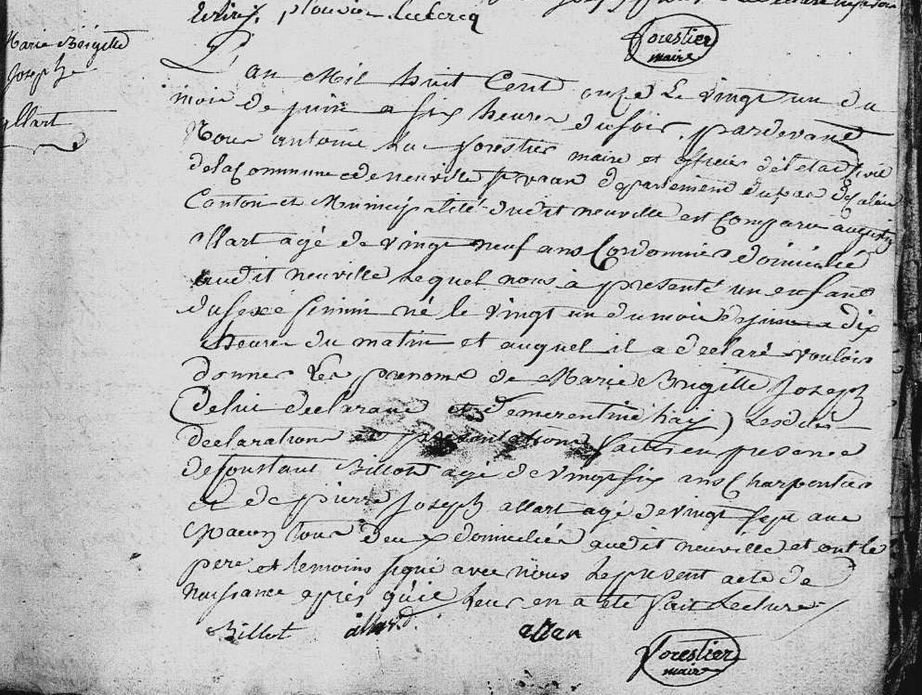 plouvier Leclercq
forestier
maire
Marie Brigitte
Joseph
allart
L'an Mil huit Cent onze Le vingt un du
mois de juin a six heures du soir. pardevant
Nous antoine forestier maire et officier de l'etat Civil
de la Commune de neuville departement du pas de Calais
Canton et Municipalité dudit neuville est Comparu augustin
allart agé de vingt neuf ans Cordonnier domicilié
audit neuville Lequel nous a presenté un enfant
du sexe feminin né le vingt un du mois de juin a dix
heures du matin et auquel il a declaré vouloir
donner Les prenoms de Marie Brigitte Joseph
De lui declarant et d'emerentine Lesdites
declaration et presentation faites en presence
de Constant Billot agé de vingt six ans Charpentier
et de pierre Joseph allart agé de vingt sept ans
Macon tous deux domiciliés audit neuville et ont le
pere et temoins signé avec nous le present acte de
Naissance après qu'il Leur en a été fait Lecture
Billot allard. allar
forestier
maire